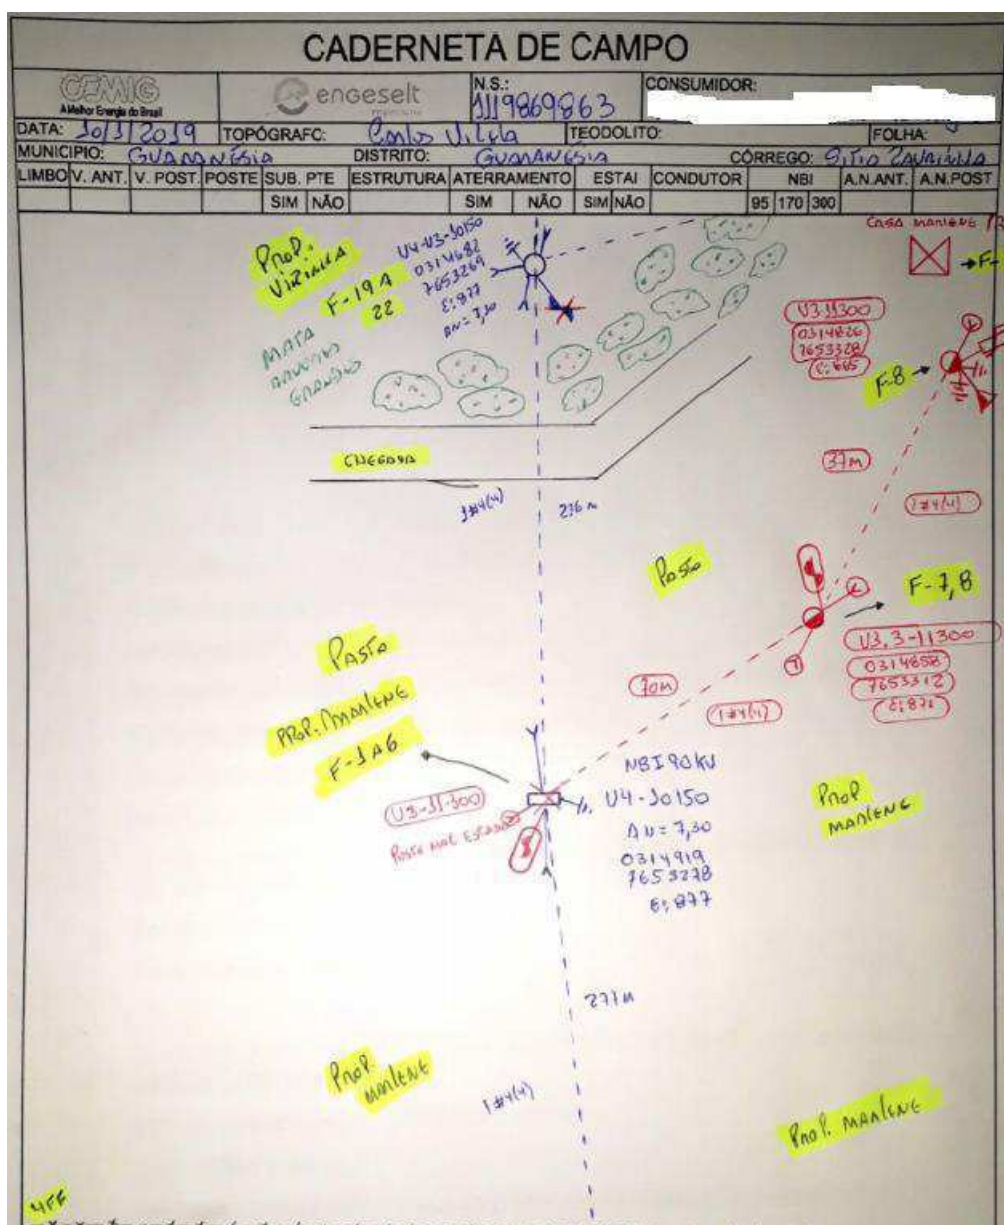 CADERNETA DE CAMPO
CEMIG
A Melhor Energia do Brasil
engeselt
N.S.:
1119869863
CONSUMIDOR:
DATA: 10/1/2019
TOPÓGRAFO: Carlos Vilela
TEODOLITO:
FOLHA:
MUNICIPIO: GUARANÉSIA
DISTRITO: GUARANÉSIA
CÓRREGO: SITIO
LIMBO V. ANT. V. POST. POSTE SUB. PTE ESTRUTURA ATERRAMENTO ESTAI CONDUTOR NBI A.N.ANT. A.N.POST
SIM NÃO SIM NÃO SIM NÃO 95 170 300
PROP.
VIZINHA
F-19A
22
U4-U3-10150
0314682
7653269
E:877
AN=7,30
CASA MARLENE
F-
MATA
U3-11300
0314826
7653328
F-8
CHEGADA
37M
1#4(4)
1#4(4)
276 M
PASTO
F-7,8
U3.3-11300
0314858
7653312
E:871
PASTO
70M
1#4(4)
PROP. MARLENE
F-1A6
NBI 90KV
U4-10150
AN=7,30
0314919
7653278
E:877
U3-11-300
POSTE MAL ESTADO
PROP
MARLENE
277M
PROP.
MARLENE
1#4(4)
PROP. MARLENE
4FF